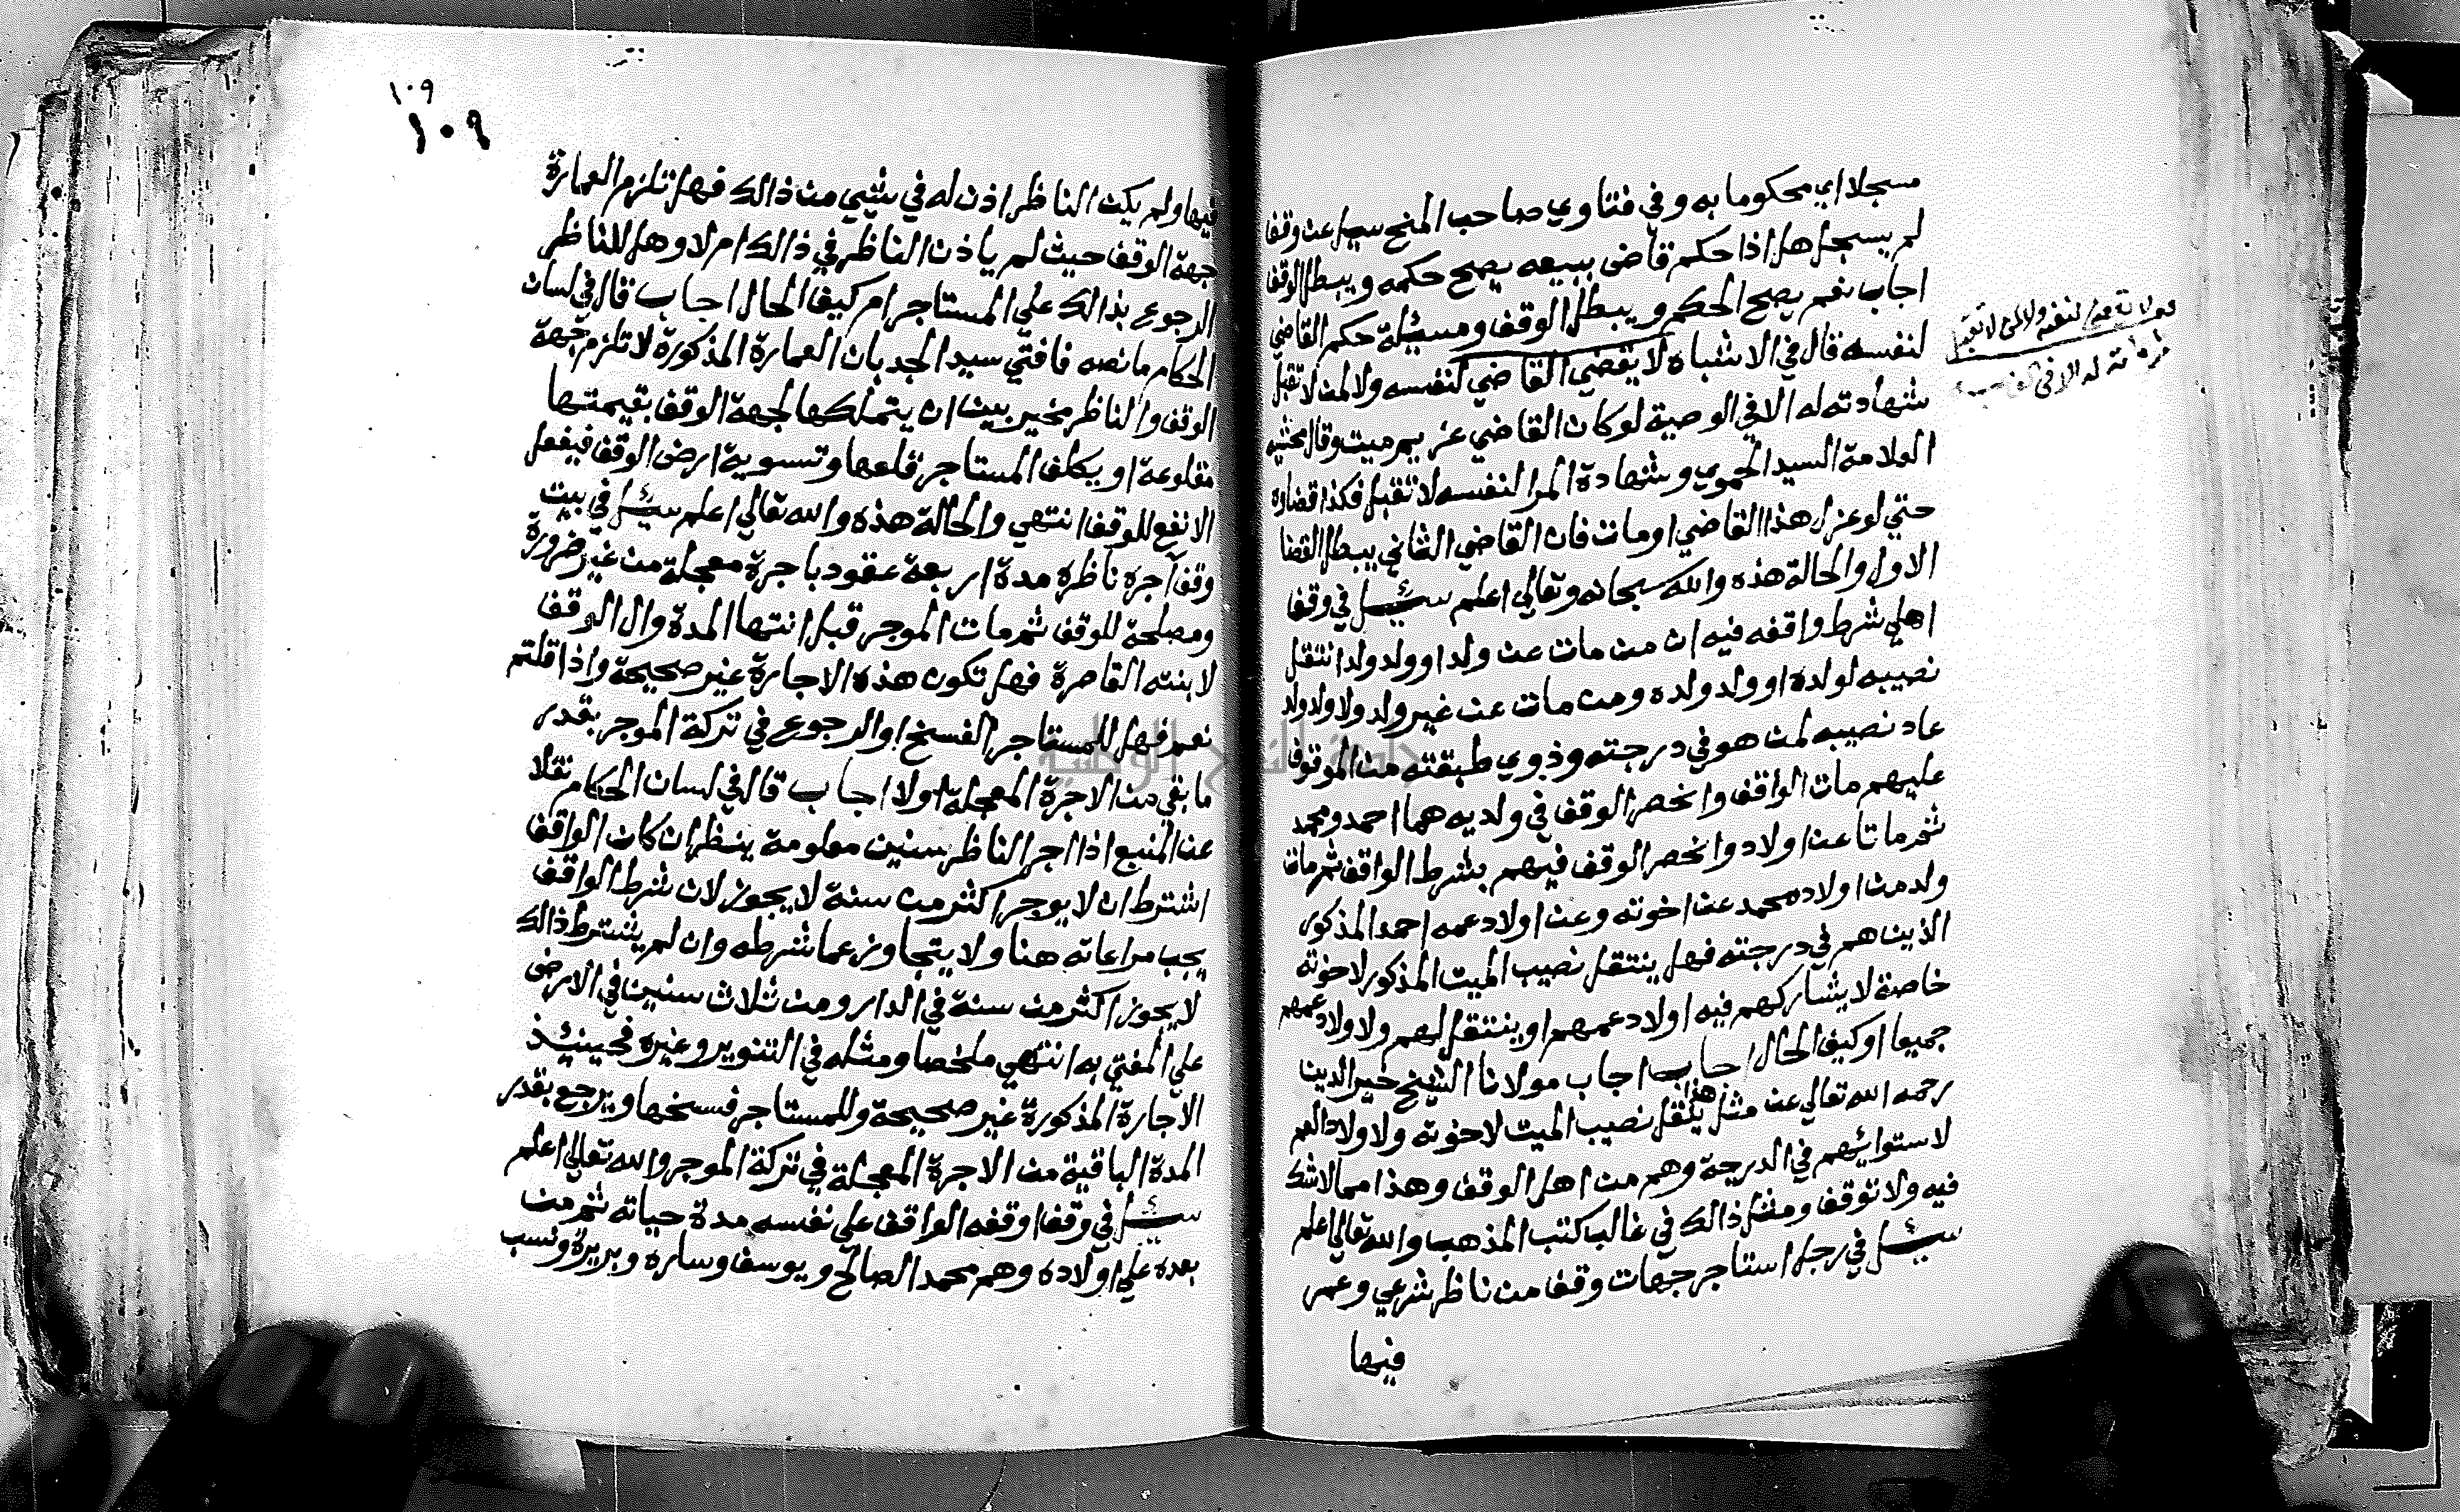 مسجلا اي محكوما به وفي فتاوي صاحب المنح سيل عن وقف
لم يسجل هل اذا حكم قاضي ببيعه يصح حكمه ويبطل الوقف
اجاب نعم يصح الحكم ويبطل الوقف ومسيلة حكم القاضي
لنفسه قال في الاشباه لا يقضي القاضي لنفسه ولا لمن لا تقبل
شهادته له الا في الوصية لو كان القاضي غريم ميت وقال محشيه
العلامة السيد الحموي وشهادة المرا لنفسه لا تقبل فكذا قضاؤه
حتي لو عزل هذا القاضي او مات فان القاضي الثاني يبطل القضا
الاول والحالة هذه والله سبحانه وتعالي اعلم سئل في وقف
اهلي شرط واقفه فيه ان من مات عن ولد او ولد ولد انتقل
نصيبه لولده او ولد ولده ومن مات عن غير ولد ولا ولد ولد
عاد نصيبه لمن هو في درجته وذوي طبقته من الموقوف
عليهم مات الواقف وانحصر الوقف في ولديه هما احمد ومحمد
ثم ماتا عن اولاد وانحصر الوقف فيهم بشرط الواقف ثم مات
ولد من اولاد محمد عن اخوته وعن اولاد عمه احمد المذكور
الذين هم في درجته فهل ينتقل نصيب الميت المذكور لاخوته
خاصة لا يشاركهم فيه اولاد عمهم او ينتقل لهم ولاولاد عمهم
جميعا او كيف الحال اجاب اجاب مولانا الشيخ خير الدين
رحمه الله تعالي عن مثل هذا ينتقل نصيب الميت لاخوته ولاولاد العم
لاستوائهم في الدرجة وهم من اهل الوقف وهذا مما لا شك
فيه ولا توقف ومثل ذالك في غالب كتب المذهب والله تعالي اعلم
سئل في رجل استاجر جهات وقف من ناظر شرعي وعمر
فيها
١٠٩
١٠٩
فيها ولم يكن الناظر اذن له في شيي من ذالك فهل تلزم العمارة
جهة الوقف حيث لم ياذن الناظر في ذالك ام لا وهل للناظر
الرجوع بذالك علي المستاجر ام كيف الحال اجاب قال في لسان
الحكام ما نصه فافتي سيد الجد بان العمارة المذكورة لا تلزم جهة
الوقف والناظر مخير بين ان يتملكها لجهة الوقف بقيمتها
مقلوعة او يكلف المستاجر قلعها وتسوية ارض الوقف فيفعل
الانفع للوقف انتهي والحالة هذه والله تعالي اعلم سئل في بيت
وقف آجره ناظره مدة اربعة عقود باجرة معجلة من غير ضرورة
ومصلحة للوقف ثم مات الموجر قبل انتها المدة وال الوقف
لابنته القاصرة فهل تكون هذه الاجارة غير صحيحة واذا قلتم
نعم فهل للمستاجر الفسخ والرجوع في تركة الموجر بقدر
ما بقي من الاجرة المعجلة او لا اجاب قال في لسان الحكام نقلا
عن المنبع اذا اجر الناظر سنين معلومة ينظر ان كان الواقف
اشترط ان لا يوجر اكثر من سنة لا يجوز لان شرط الواقف
يجب مراعاته هنا ولا يتجاوز عما شرطه وان لم يشترط ذالك
لا يجوز اكثر من سنة في الدار ومن ثلاث سنين في الارض
علي المفتي به انتهي ملخصا ومثله في التنوير وغيره فحينيئذ
الاجارة المذكورة غير صحيحة وللمستاجر فسخها ويرجع بقدر
المدة الباقية من الاجرة المعجلة في تركة الموجر والله تعالي اعلم
سئل في وقف اوقفه الواقف علي نفسه مدة حياته ثم من
بعده علي اولاده وهم محمد الصالح ويوسف وساره وبريرة ونسب